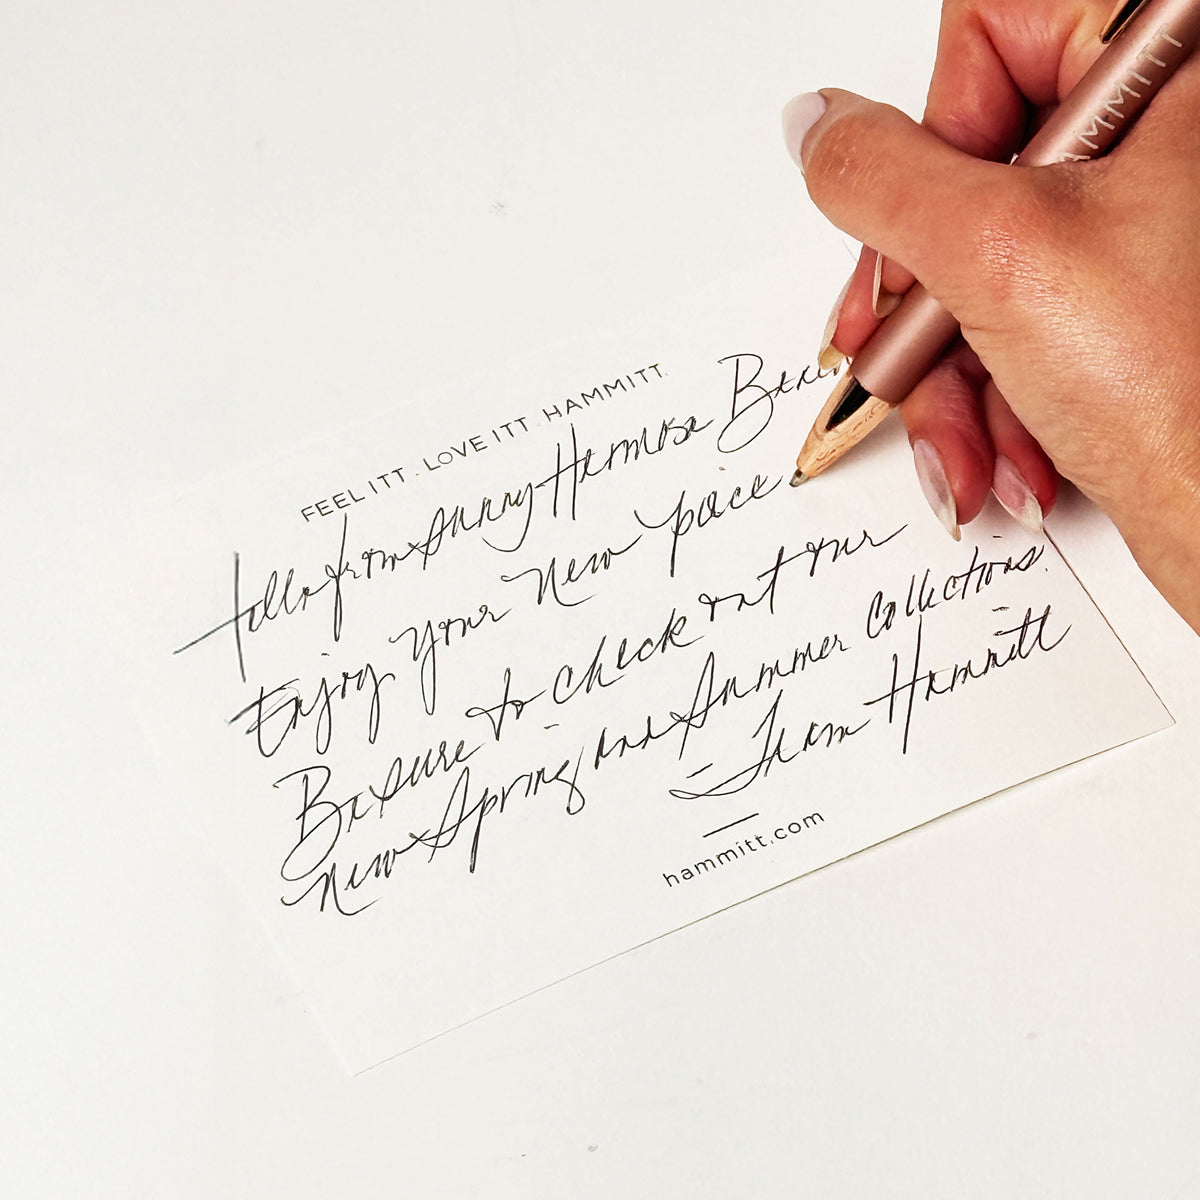 FEEL ITT. LOVE ITT. HAMMITT.
Hello from sunny Hermosa Beach
Enjoy your new piece
Be sure to check out our
new Spring and Summer Collections.
- Team Hammitt
hammitt.com
AMMITT